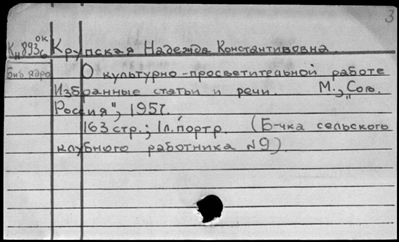 3
ок
Кн893/6 Крупская Надежда Константиновна.
Биб. ядро О культурно-просветительной работе
Избранные статьи и речи. М., „Сов.
Россия", 1957.
163 стр.; 1л. портр. (Б-чка сельского
клубного работника №9).